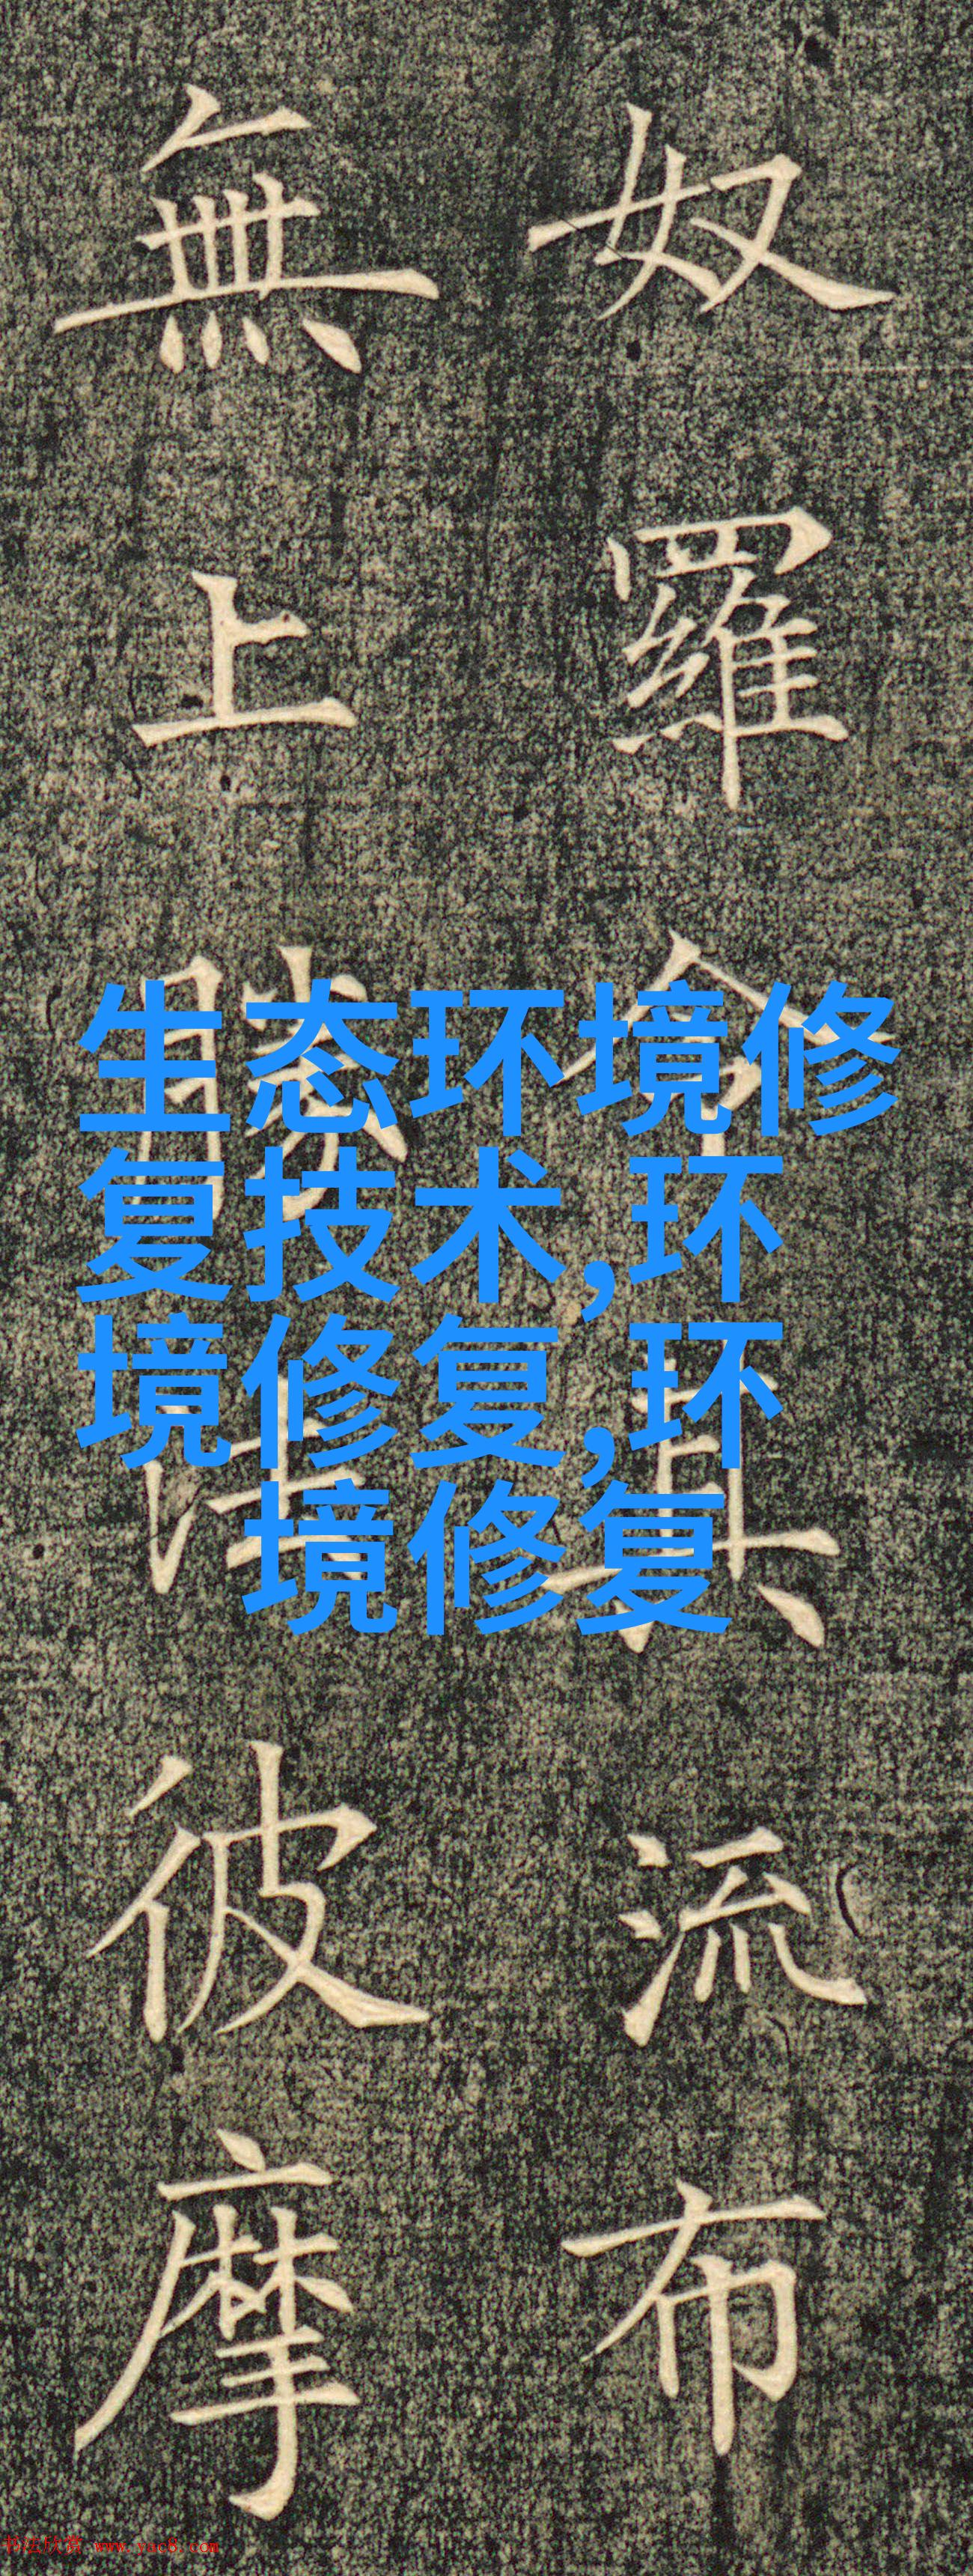 奴羅令其流布
無上勝法彼摩
生态环境修
复技术,环
境修复,环
境修复
书法欣赏 www.yac8.com